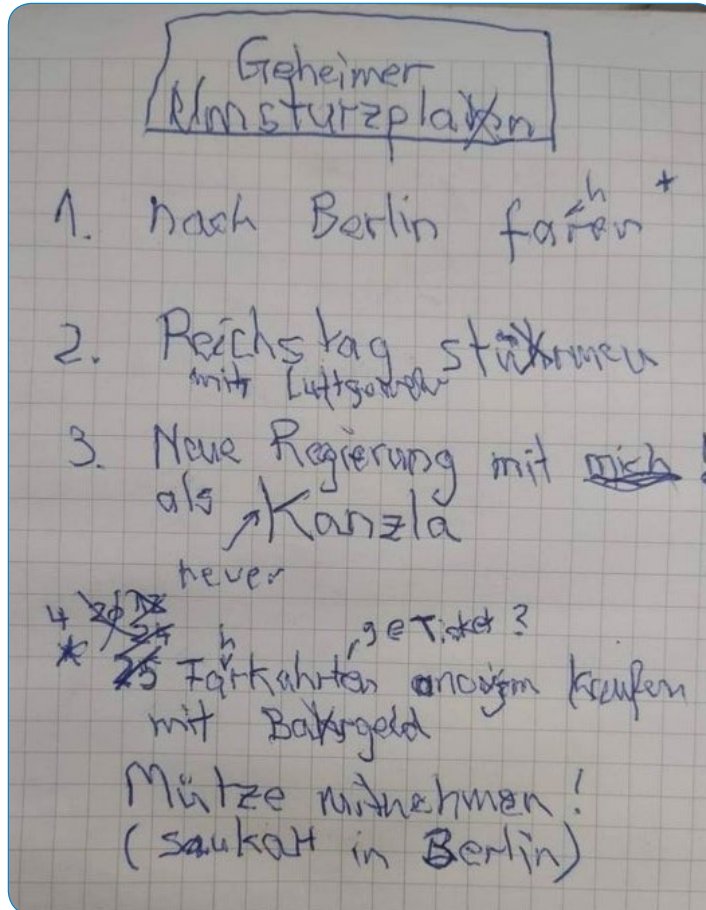 Geheimer
Umsturzplan
h *
1. nach Berlin faren
2. Reichstag stürmen
mit Luftgewehr
3. Neue Regierung mit mich !
als Kanzla
neuer
4
h , 9€ Ticket ?
* Farkahrten anonym kaufen
mit Bargeld
Mütze mitnehmen !
(saukalt in Berlin)